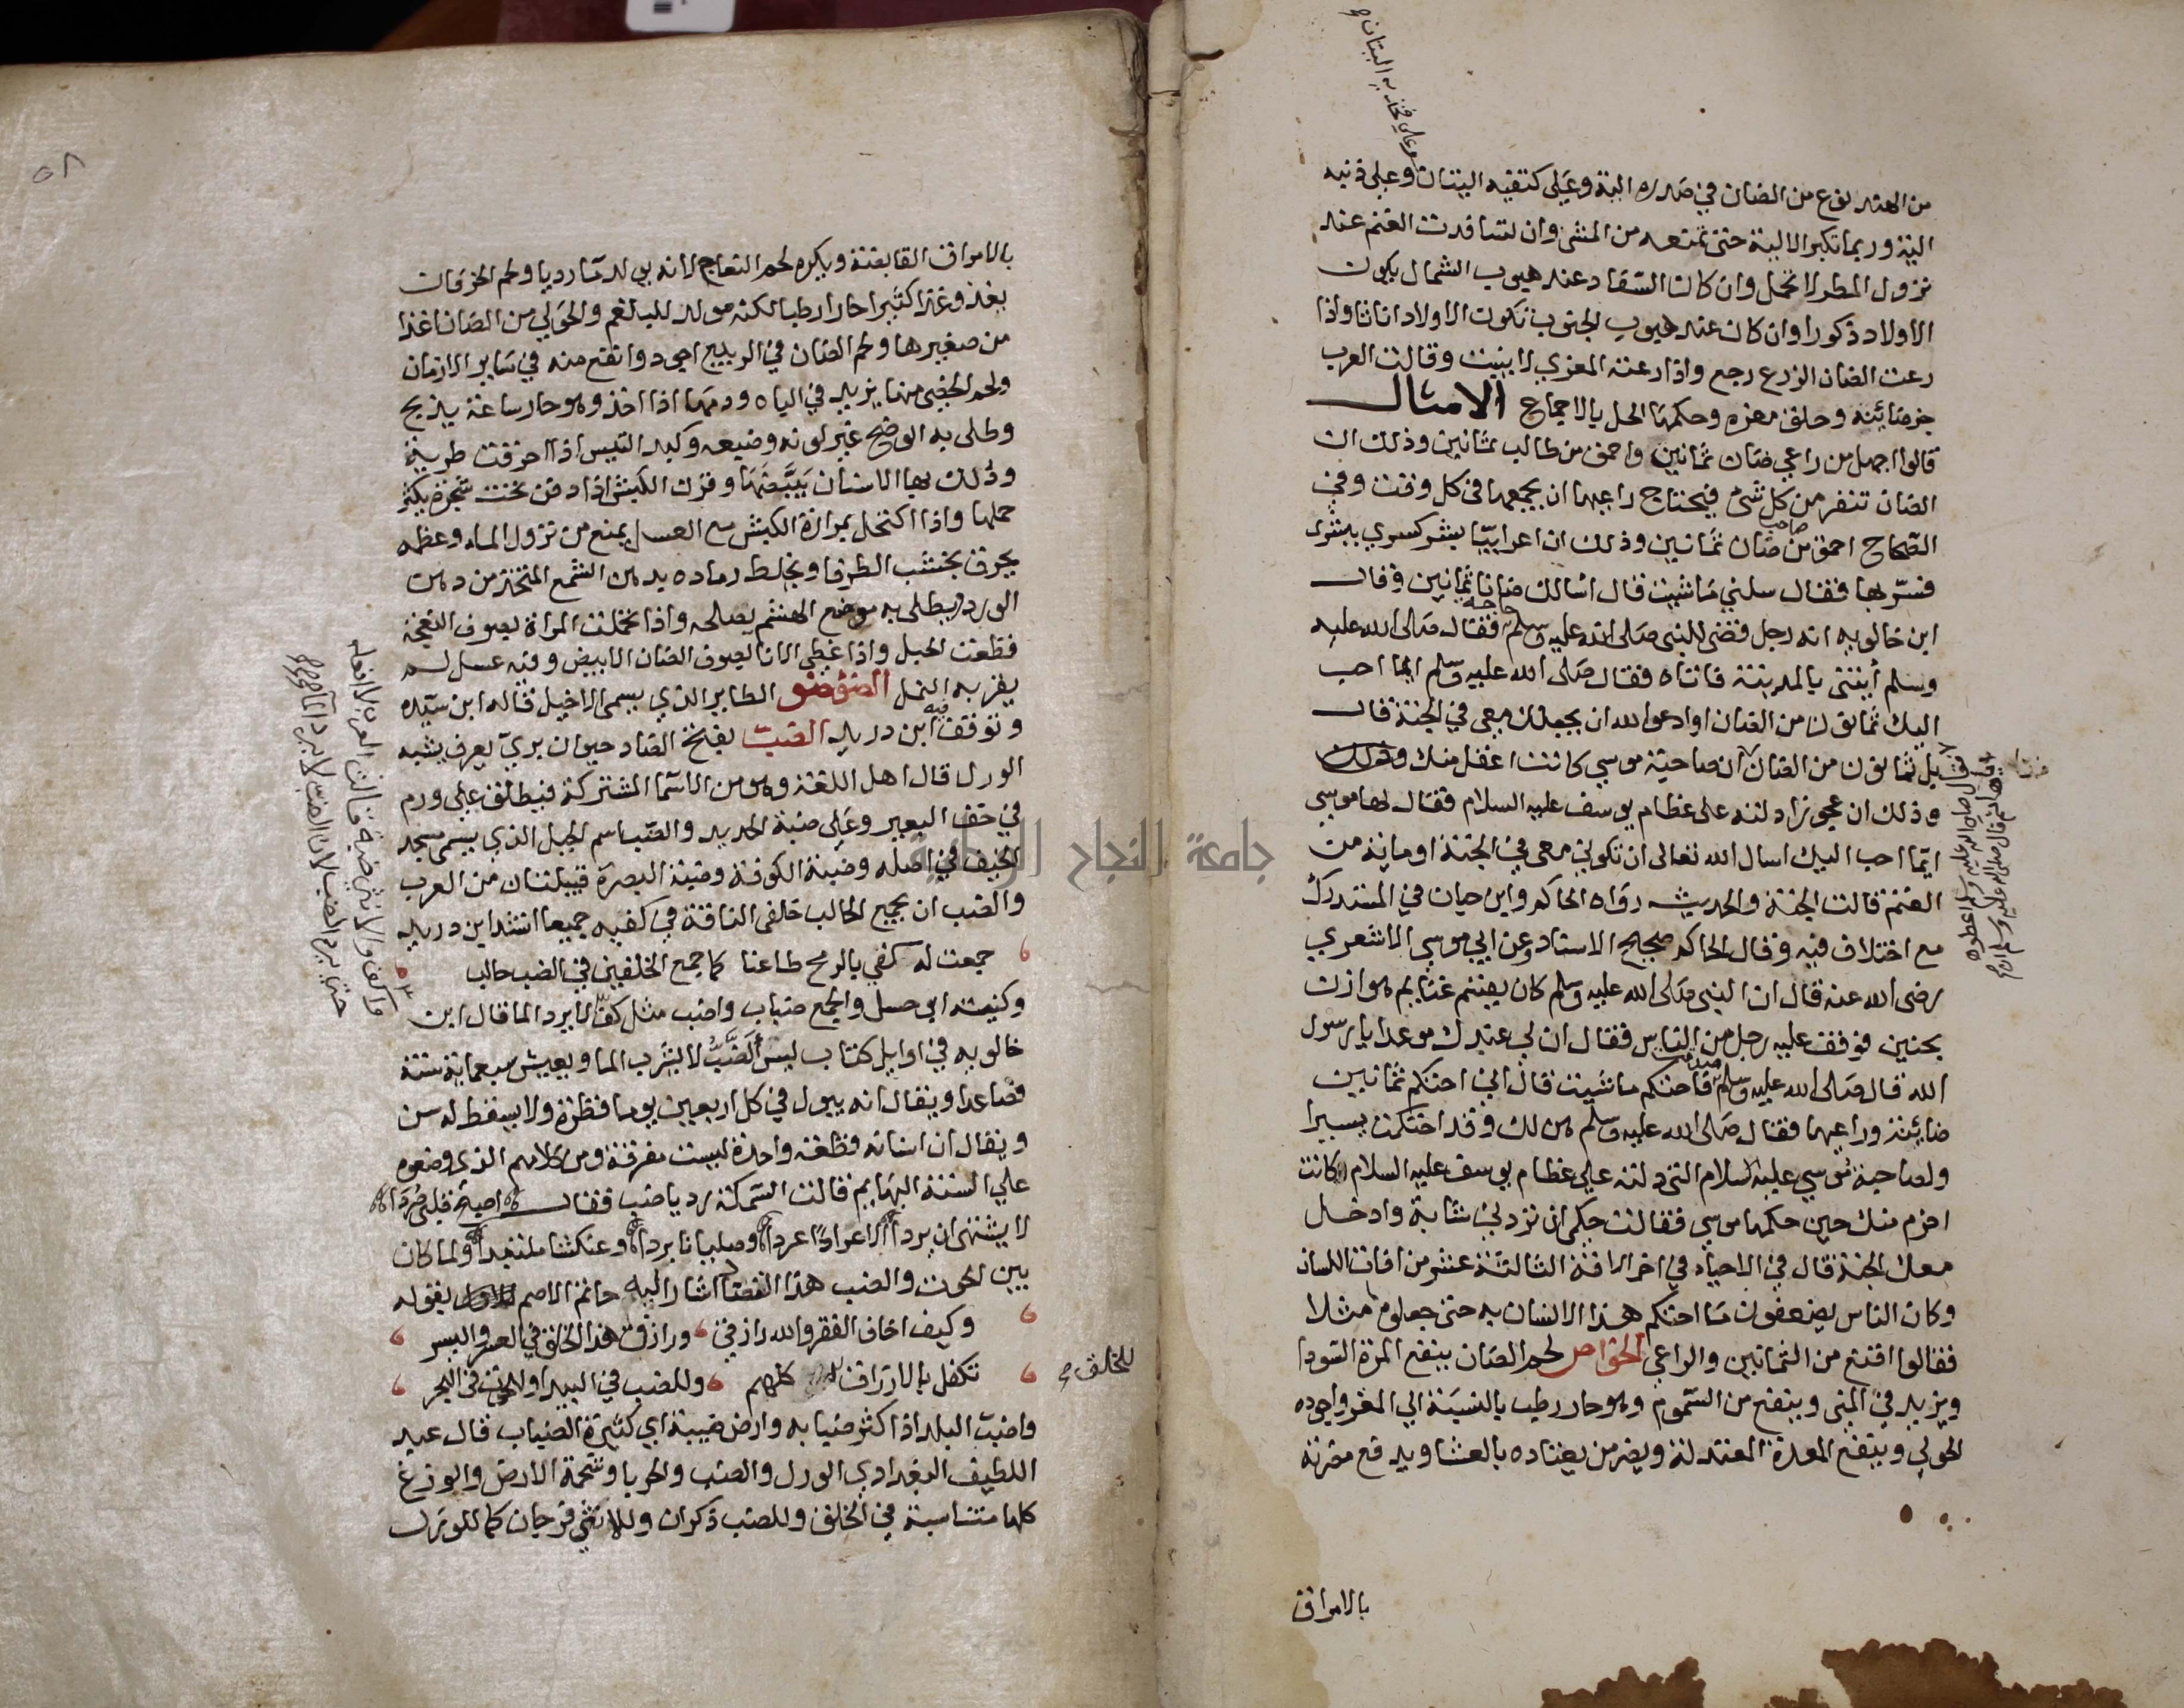 من الهند نوع من الضان في صدره الية وعلى كتفيه اليتان وعلى ذنبه
وعلى فخذيه اليتان
الية وربما تكبر الالية حتى تمنعه من المشي وان تسافدت الغنم عند
نزول المطر لا تحمل وان كان السفاد عند هبوب الشمال يكون
الاولاد ذكورا وان كان عند هبوب الجنوب تكون الاولاد اناثا واذا
رعت الضان الزرع رجع واذا رعته المعزي لا ينبت وقالت العرب
جز ضائنه وحلق معزه وحكمها الحل بالاجماع الامثال
قالوا اجهل من راعي ضان ثمانين واحمق من طالب ثمانين وذلك ان
الضان تنفر من كل شئ فيحتاج راعيها ان يجمعها في كل وقت وفي
الصحاح احمق من صاحب ضان ثمانين وذلك ان اعرابيا بشر كسري ببشرى
فسر بها فقال سلني ما شيت قال اسالك ضانا ثمانين وقال
ابن خالويه انه رجل قضى للنبي صلى الله عليه وسلم حاجه فقال صلى الله عليه
وسلم أيتني بالمدينة فاتاه فقال صلى الله عليه وسلم ايما احب
اليك ثمانون من الضان او ادعو الله ان يجعلك معي في الجنة قال
بل ثمانون من الضان ان صاحبة موسي كانت اعقل منك
فقال صلى الله عليه وسلم اعطوه
وذلك ان عجوزا دلته على عظام يوسف عليه السلام فقال لها موسي
ايما احب اليك اسال الله تعالى ان تكوني معي في الجنة او ماية من
الغنم قالت الجنة والحديث رواه الحاكم وابن حبان في المستدرك
مع اختلاف فيه وقال الحاكم صحيح الاسناد وعن ابي موسي الاشعري
رضى الله عنه قال ان النبي صلى الله عليه وسلم كان يقسم غنايم هوازن
بحنين فوقف عليه رجل من الناس فقال ان لي عندك موعدا يا رسول
الله قال صلى الله عليه وسلم صدقت فاحتكم ما شيت قال اني احتكم ثمانين
ضاينة وراعيها فقال صلى الله عليه وسلم هي لك وقد احتكمت يسيرا
ولصاحبة موسي عليه السلام التي دلته على عظام يوسف عليه السلام كانت
احزم منك حين حكمها موسي فقالت حكمي ان تردني شابة وادخل
معك الجنة قال في الاحياء في اخر الافة الثالثة عشر من افات اللسان
وكان الناس يضعفون ما احتكم هذا الانسان به حتى جعلوه مثلا
فقالوا اقنع من الثمانين والراعي الخواص لحم الضان ينفع المرة السودا
ويزيد في المني وينفع من السموم وهو حار رطب بالنسبة الي المعز واجوده
الحولي وينفع المعدة المعتدلة ويضر من يعتاده بالعشا ويدفع مضرته
بالامراق
٥٨
بالامراق القابضة ويكره لحم النعاج لانه يولد دما رديا ولحم الخرفان
يغذو غذا كثيرا حارا رطبا لكنه مولد للبلغم والحولي من الضان اغذا
من صغيرها ولحم الضان في الربيع اجود وانفع منه في ساير الازمان
ولحم الخصي منها يزيد في الباه ودمها اذا اخذ وهو حار ساعة يذبح
وطلي به الوضح غير لونه وضيعه وكبد التيس اذا احرقت طرية
وذلك بها الاسنان بيضها وقرن الكبش اذا دفن تحت شجرة يكثر
حملها واذا اكتحل بمرارة الكبش مع العسل يمنع من نزول الماء وعظمه
يحرق بخشب الطرفا ويخلط رماده بدهن الشمع المتخذ من دهن
الورد ويطلى به موضع الهشم يصلحه واذا تحملت المراة بصوف النعجة
قطعت الحبل واذا غطي الانا بصوف الضان الابيض وفيه عسل لم
يقربه النمل الضؤضؤ الطاير الذي يسمى الاخيل قاله ابن سيده
وتوقف فيه ابن دريد الضب بفتح الضاد حيوان بري يعرف يشبه
الورل قال اهل اللغة وهو من الاسما المشتركة فيطلق على ورم
في خف البعير وعلى ضبة الحديد والضب اسم الجبل الذي يسمى مسجد
الخيف في اصله وضبة الكوفة وضبة البصرة قبيلتان من العرب
والضب ان يجمع الحالب خلفى الناقة في كفيه جميعا انشد ابن دريد
جمعت له كفي بالرمح طاعنا كما جمع الخلفين في الضب حالب
وكنيته ابو حسل والجمع ضباب واضب مثل كف لا يرد الما قال ابن
واكف والانثى ضبة قالت العرب لا افعله
حتى يرد الضب لان الضب لا يرد الماء
خالويه في اوايل كتاب ليس الضب لا يشرب الما ويعيش سبعماية سنة
فصاعدا ويقال انه يبول في كل اربعين يوما قطرة ولا يسقط له سن
ويقال ان اسنانه قطعة واحدة ليست مفرقة ومن كلامهم الذي وضعوه
على السنة البهايم قالت السمكة رد يا ضب فقال اصبح قلبي صردا
لا يشتهي ان يردا الا عرادا عردا وصليانا بردا وعنكثا ملتبدا ولما كان
بين الحوت والضب هذا التضاد اشار اليه حاتم الاصم بقوله
وكيف اخاف الفقر والله رازقي ورازق هذا الخلق في العسر واليسر
تكفل بالارزاق للخلق كلهم وللضب في البيدا وللحوت في البحر
واضبت البلد اذا كثر ضبابه وارض ضيبة اي كثيرة الضباب قال عبد
اللطيف البغدادي الورل والضب والحربا وشحمة الارض والوزغ
كلها متناسبة في الخلق وللضب ذكران وللانثى فرجان كما للورل
جامعة النجاح الوطنية